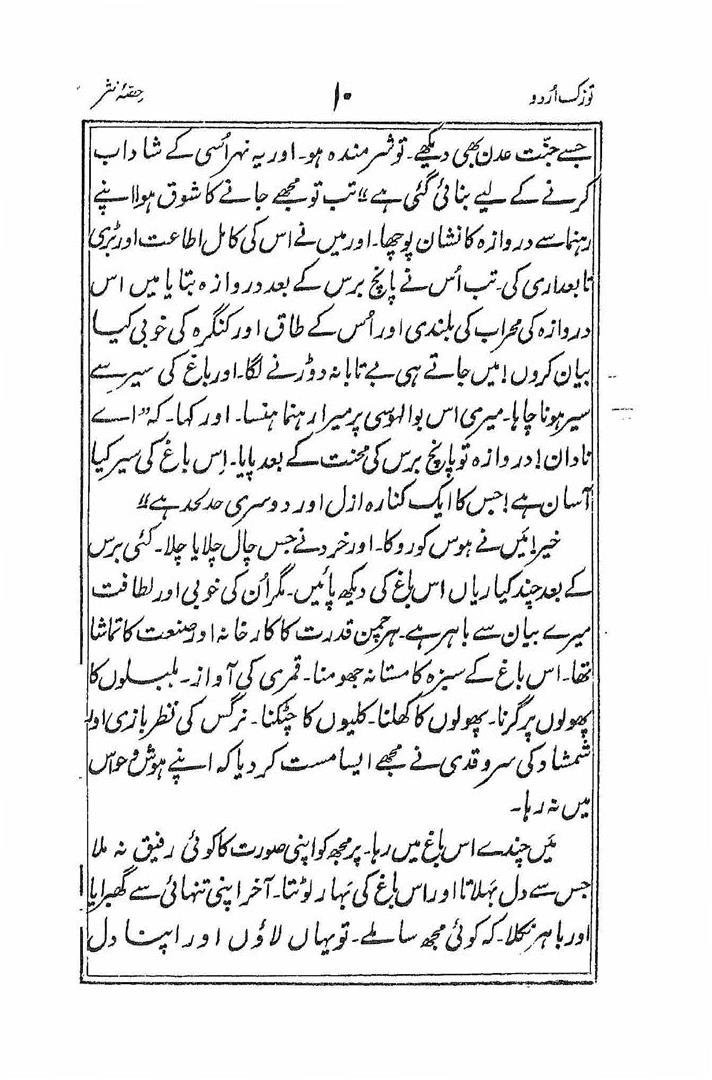 توزک اُردو
۱۰
حصّہ نثر
جسے جنّت عدن بھی دیکھے۔ تو شرمندہ ہو۔ اور یہ نہر اُسی کے شاداب
کرنے کے لیے بنائی گئی ہے" تب تو مجھے جانے کا شوق ہوا! اپنے
رہنما سے دروازہ کا نشان پوچھا۔ اور میں نے اس کی کامل اطاعت اور بڑی
تابعداری کی۔ تب اُس نے پانچ برس کے بعد دروازہ بتایا میں اس
دروازہ کی محراب کی بلندی اور اُس کے طاق اور کنگرہ کی خوبی کیا
بیان کروں! میں جاتے ہی بے تابانہ دوڑنے لگا۔ اور باغ کی سیر سے
سیر ہونا چاہا۔ میری اس بوالہوسی پر میرا رہنما ہنسا۔ اور کہا۔ کہ "اے
نادان! دروازہ تو پانچ برس کی محنت کے بعد پایا۔ اِس باغ کی سیر کیا
آسان ہے! جس کا ایک کنارہ ازل اور دوسری حد لحد ہے"
خیر! میں نے ہوس کو روکا۔ اور خرد نے جس چال چلایا چلا۔ کئی برس
کے بعد چند کیاریاں اس باغ کی دیکھ پائیں۔ مگر اُن کی خوبی اور لطافت
میرے بیان سے باہر ہے۔ ہر چمن قدرت کا کارخانہ اور صنعت کا تماشا
تھا۔ اس باغ کے سبزہ کا مستانہ جھومنا۔ قمری کی آواز۔ بلبلوں کا
پھولوں پر گرنا۔ پھولوں کا کھلنا۔ کلیوں کا چٹکنا۔ نرگس کی نظر بازی اور
شمشاد کی سرو قدی نے مجھے ایسا مست کر دیا کہ اپنے ہوش و حواس
میں نہ رہا۔
میں چندے اس باغ میں رہا۔ پر مجھ کو اپنی صورت کا کوئی رفیق نہ ملا
جس سے دل بہلاتا اور اس باغ کی بہار لوٹتا۔ آخر اپنی تنہائی سے گھبرایا
اور باہر نکلا۔ کہ کوئی مجھ سا ملے۔ تو یہاں لاؤں اور اپنا دل